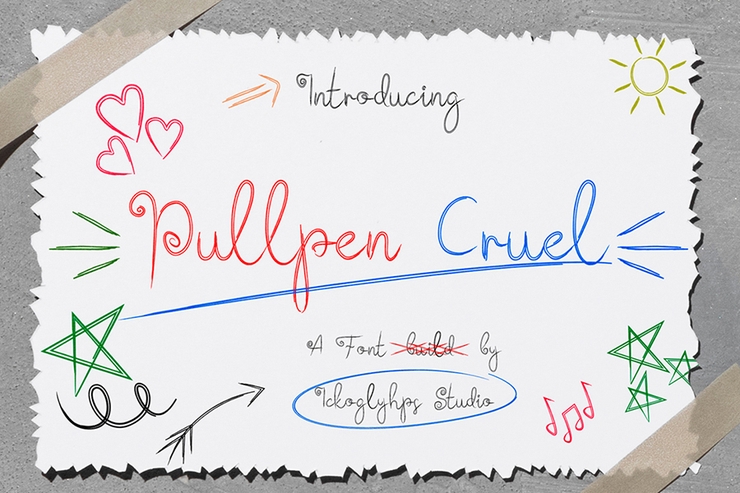 Introducing
Pullpen Cruel
A Font build by
Ickoglyhps Studio